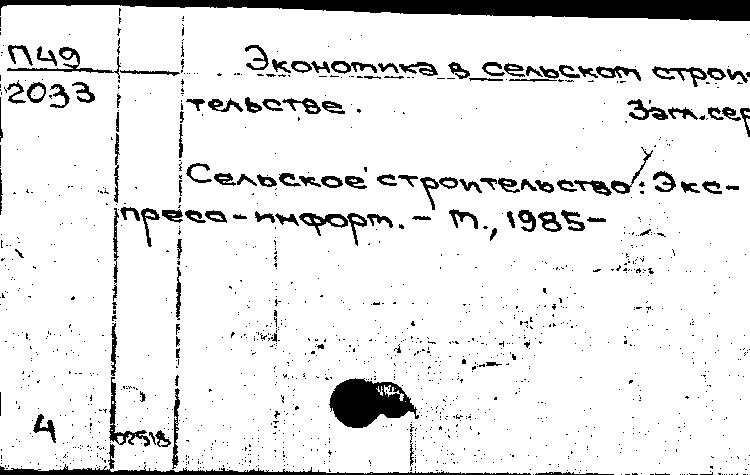 П49
2033
Экономика в сельском строи-
тельстве. Загл.сер
Сельское строительство: Экс-
пресс-информ. - М., 1985-
4
02518